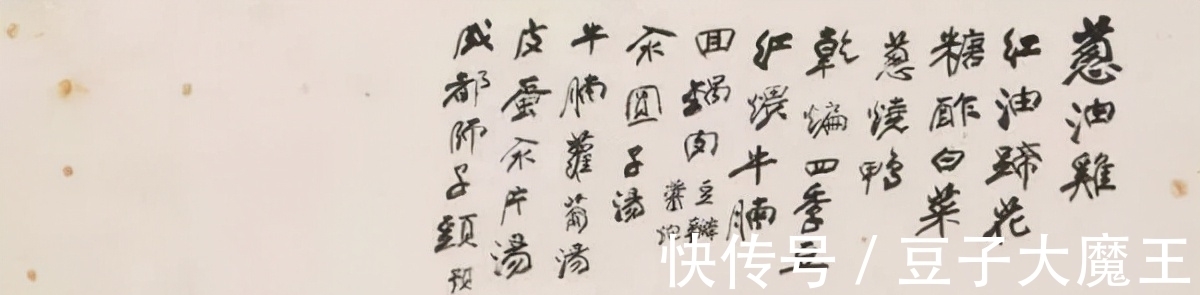 蔥油雞
紅油蹄花
糖酢白菜
蔥燒鴨
乾煸四季豆
紅煨牛腩
回鍋肉 豆瓣
氽圓子湯
牛腩蘿蔔湯
皮蛋氽片湯
成都師子頭 預
快传号 / 豆子大魔王